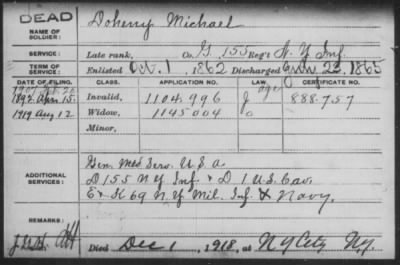 DEAD
NAME OF SOLDIER:
Doherty Michael
SERVICE:
Late rank, Co. G 155 Reg't N.Y. Inf.
TERM OF SERVICE:
Enlisted Oct. 1, 1862 Discharged July 23, 1865
DATE OF FILING. CLASS. APPLICATION NO. LAW. CERTIFICATE NO.
1907 Feb. 20 age
1892 Apr. 15. Invalid, 1104.996 888.757
1919 Aug 12 Widow, 1145004
Minor,
ADDITIONAL SERVICES:
Gen. Med Serv. U.S.A.
D 155 N Y Inf. & D 1 U.S. Cav.
E & K 69 N.Y. Mil. Inf. & Navy.
REMARKS:
Died Dec 1, 1918, at N Y City N.Y.